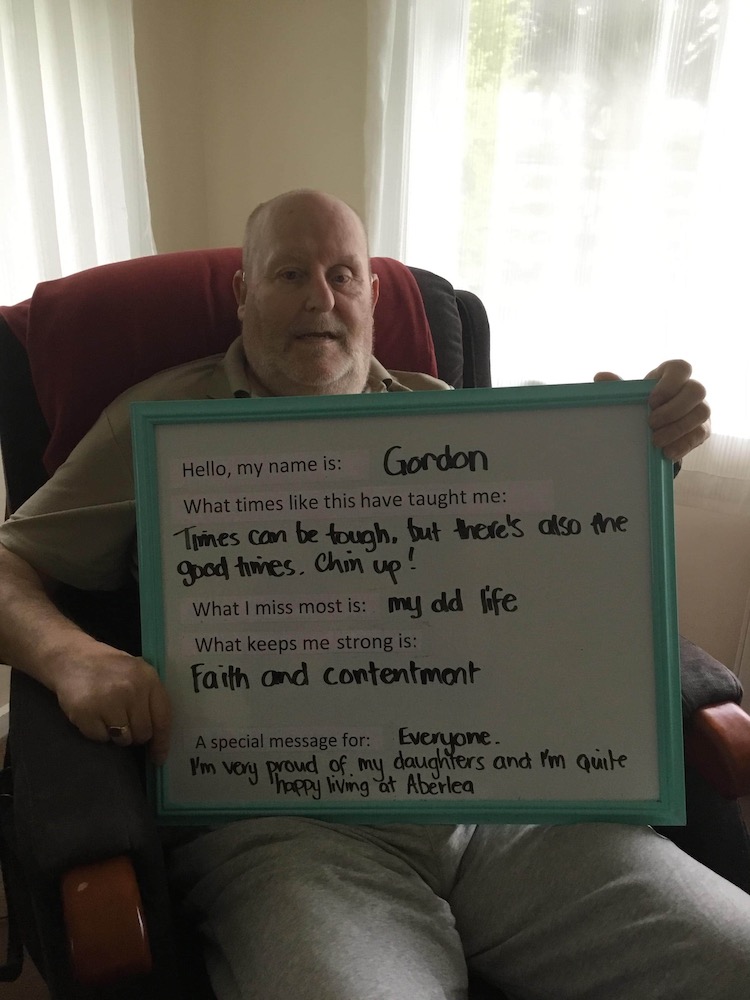 Hello, my name is: Gordon
What times like this have taught me:
Times can be tough, but there's also the
good times. Chin up!
What I miss most is: my old life
What keeps me strong is:
Faith and contentment
A special message for: Everyone.
I'm very proud of my daughters and I'm quite
happy living at Aberlea